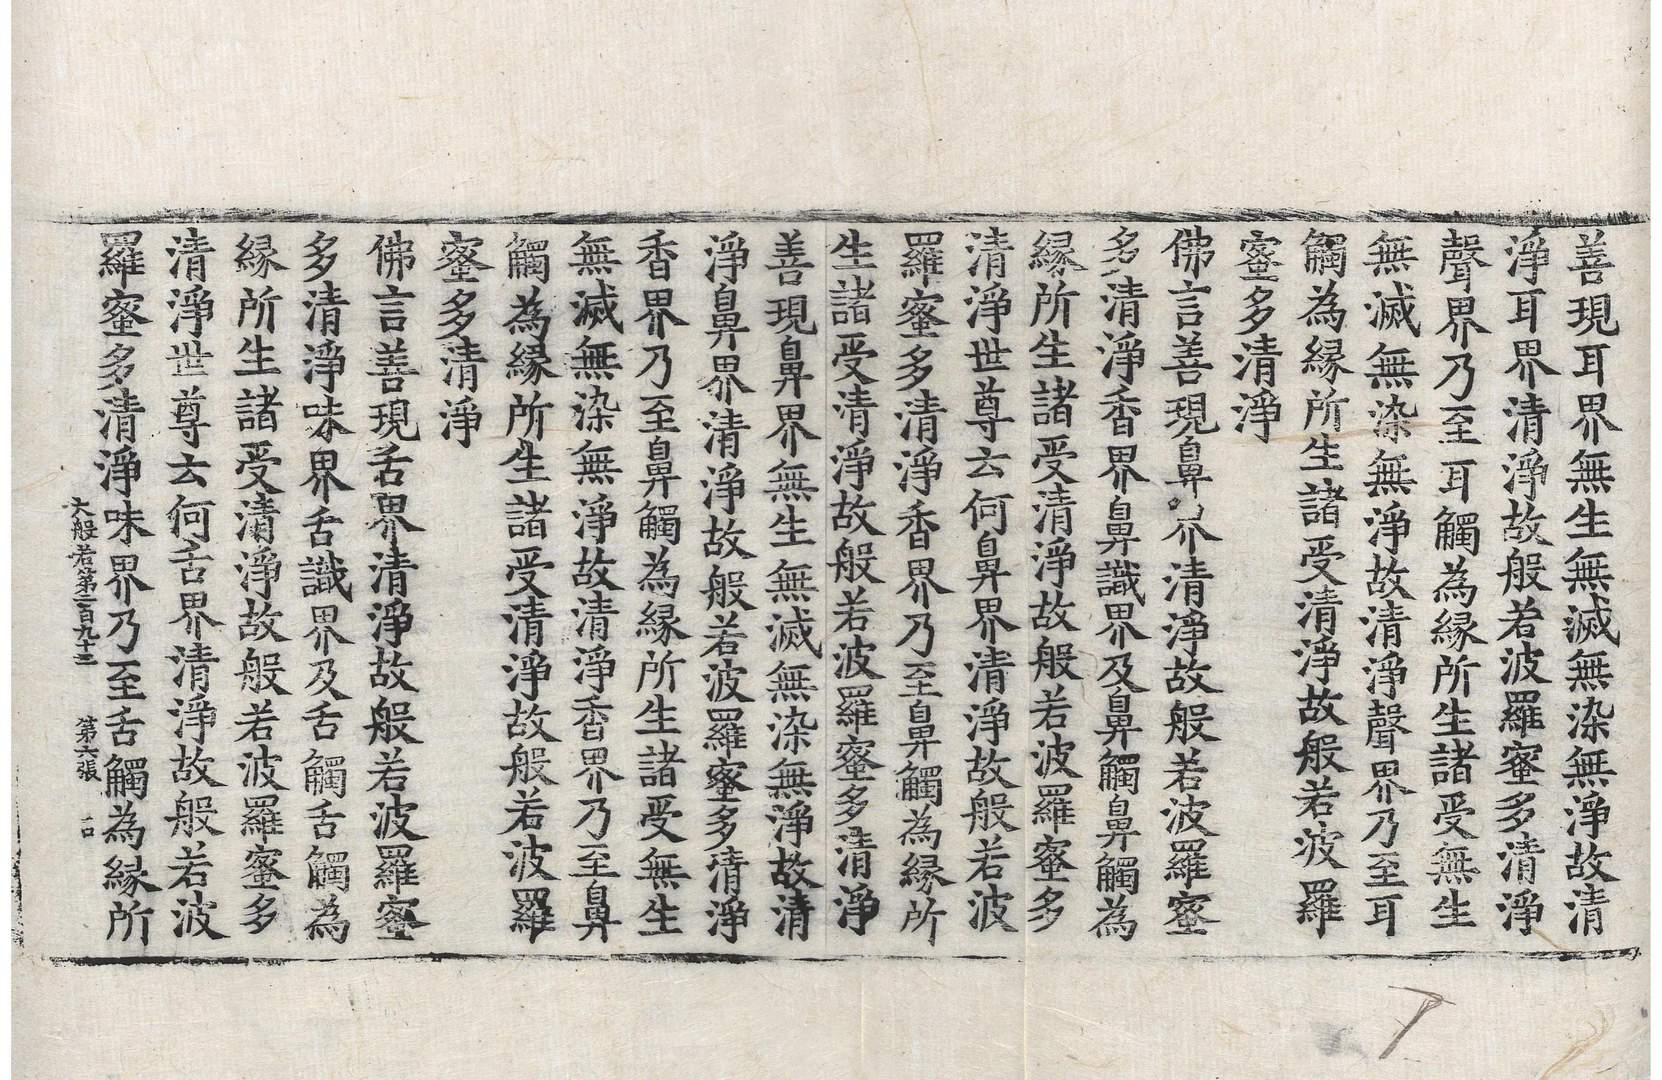 善現耳界無生無滅無染無淨故清
淨耳界清淨故般若波羅蜜多清淨
聲界乃至耳觸為緣所生諸受無生
無滅無染無淨故清淨聲界乃至耳
觸為緣所生諸受清淨故般若波羅
蜜多清淨
佛言善現鼻界清淨故般若波羅蜜
多清淨香界鼻識界及鼻觸鼻觸為
緣所生諸受清淨故般若波羅蜜多
清淨世尊云何鼻界清淨故般若波
羅蜜多清淨香界乃至鼻觸為緣所
生諸受清淨故般若波羅蜜多清淨
善現鼻界無生無滅無染無淨故清
淨鼻界清淨故般若波羅蜜多清淨
香界乃至鼻觸為緣所生諸受無生
無滅無染無淨故清淨香界乃至鼻
觸為緣所生諸受清淨故般若波羅
蜜多清淨
佛言善現舌界清淨故般若波羅蜜
多清淨味界舌識界及舌觸舌觸為
緣所生諸受清淨故般若波羅蜜多
清淨世尊云何舌界清淨故般若波
羅蜜多清淨味界乃至舌觸為緣所
大般若第二百九十三 第六張